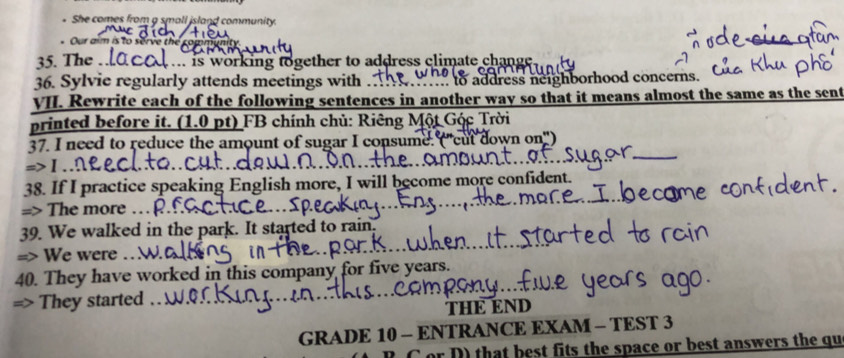 • She comes from a small island community.
mục đích / tiêu
• Our aim is to serve the community.
community
35. The ..lacal... is working together to address climate change.
36. Sylvie regularly attends meetings with ..the whole community.. to address neighborhood concerns.
của khu phố
VII. Rewrite each of the following sentences in another way so that it means almost the same as the sent
printed before it. (1.0 pt) FB chính chủ: Riêng Một Góc Trời
tiêu thụ
37. I need to reduce the amount of sugar I consume. ("cut down on")
=> I ..need to cut down on the amount of sugar
38. If I practice speaking English more, I will become more confident.
=> The more ...practice speaking Eng..., the more I become confident.
39. We walked in the park. It started to rain.
=> We were ..walking in the park when it started to rain
40. They have worked in this company for five years.
=> They started ..working in this company five years ago.
THE END
GRADE 10 – ENTRANCE EXAM – TEST 3
C or D) that best fits the space or best answers the qu